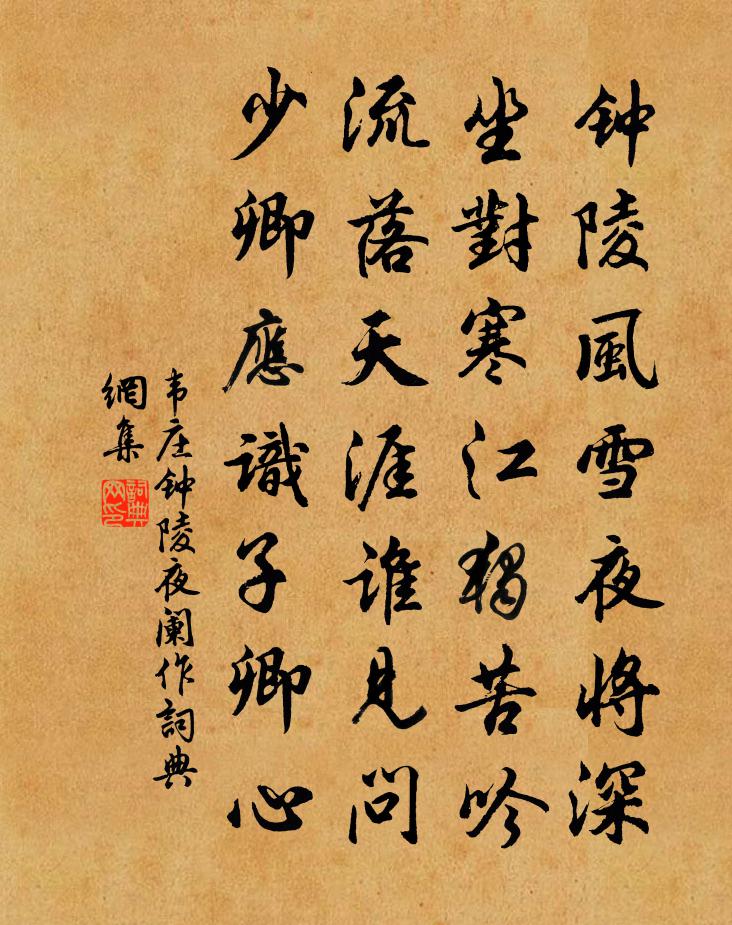 钟陵風雪夜將深
坐對寒江獨苦吟
流落天涯誰見問
少卿應識子卿心
韦庄钟陵夜闌作詞典
網集
詞典
网印